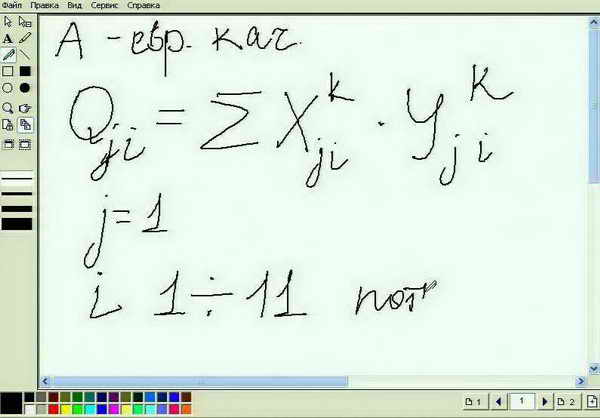 Файл Правка Вид Сервис Справка
А - евр. кач.
Q_ji = Σ X_ji^k · Y_ji^k
j = 1
i 1 ÷ 11 пот
1 1 2